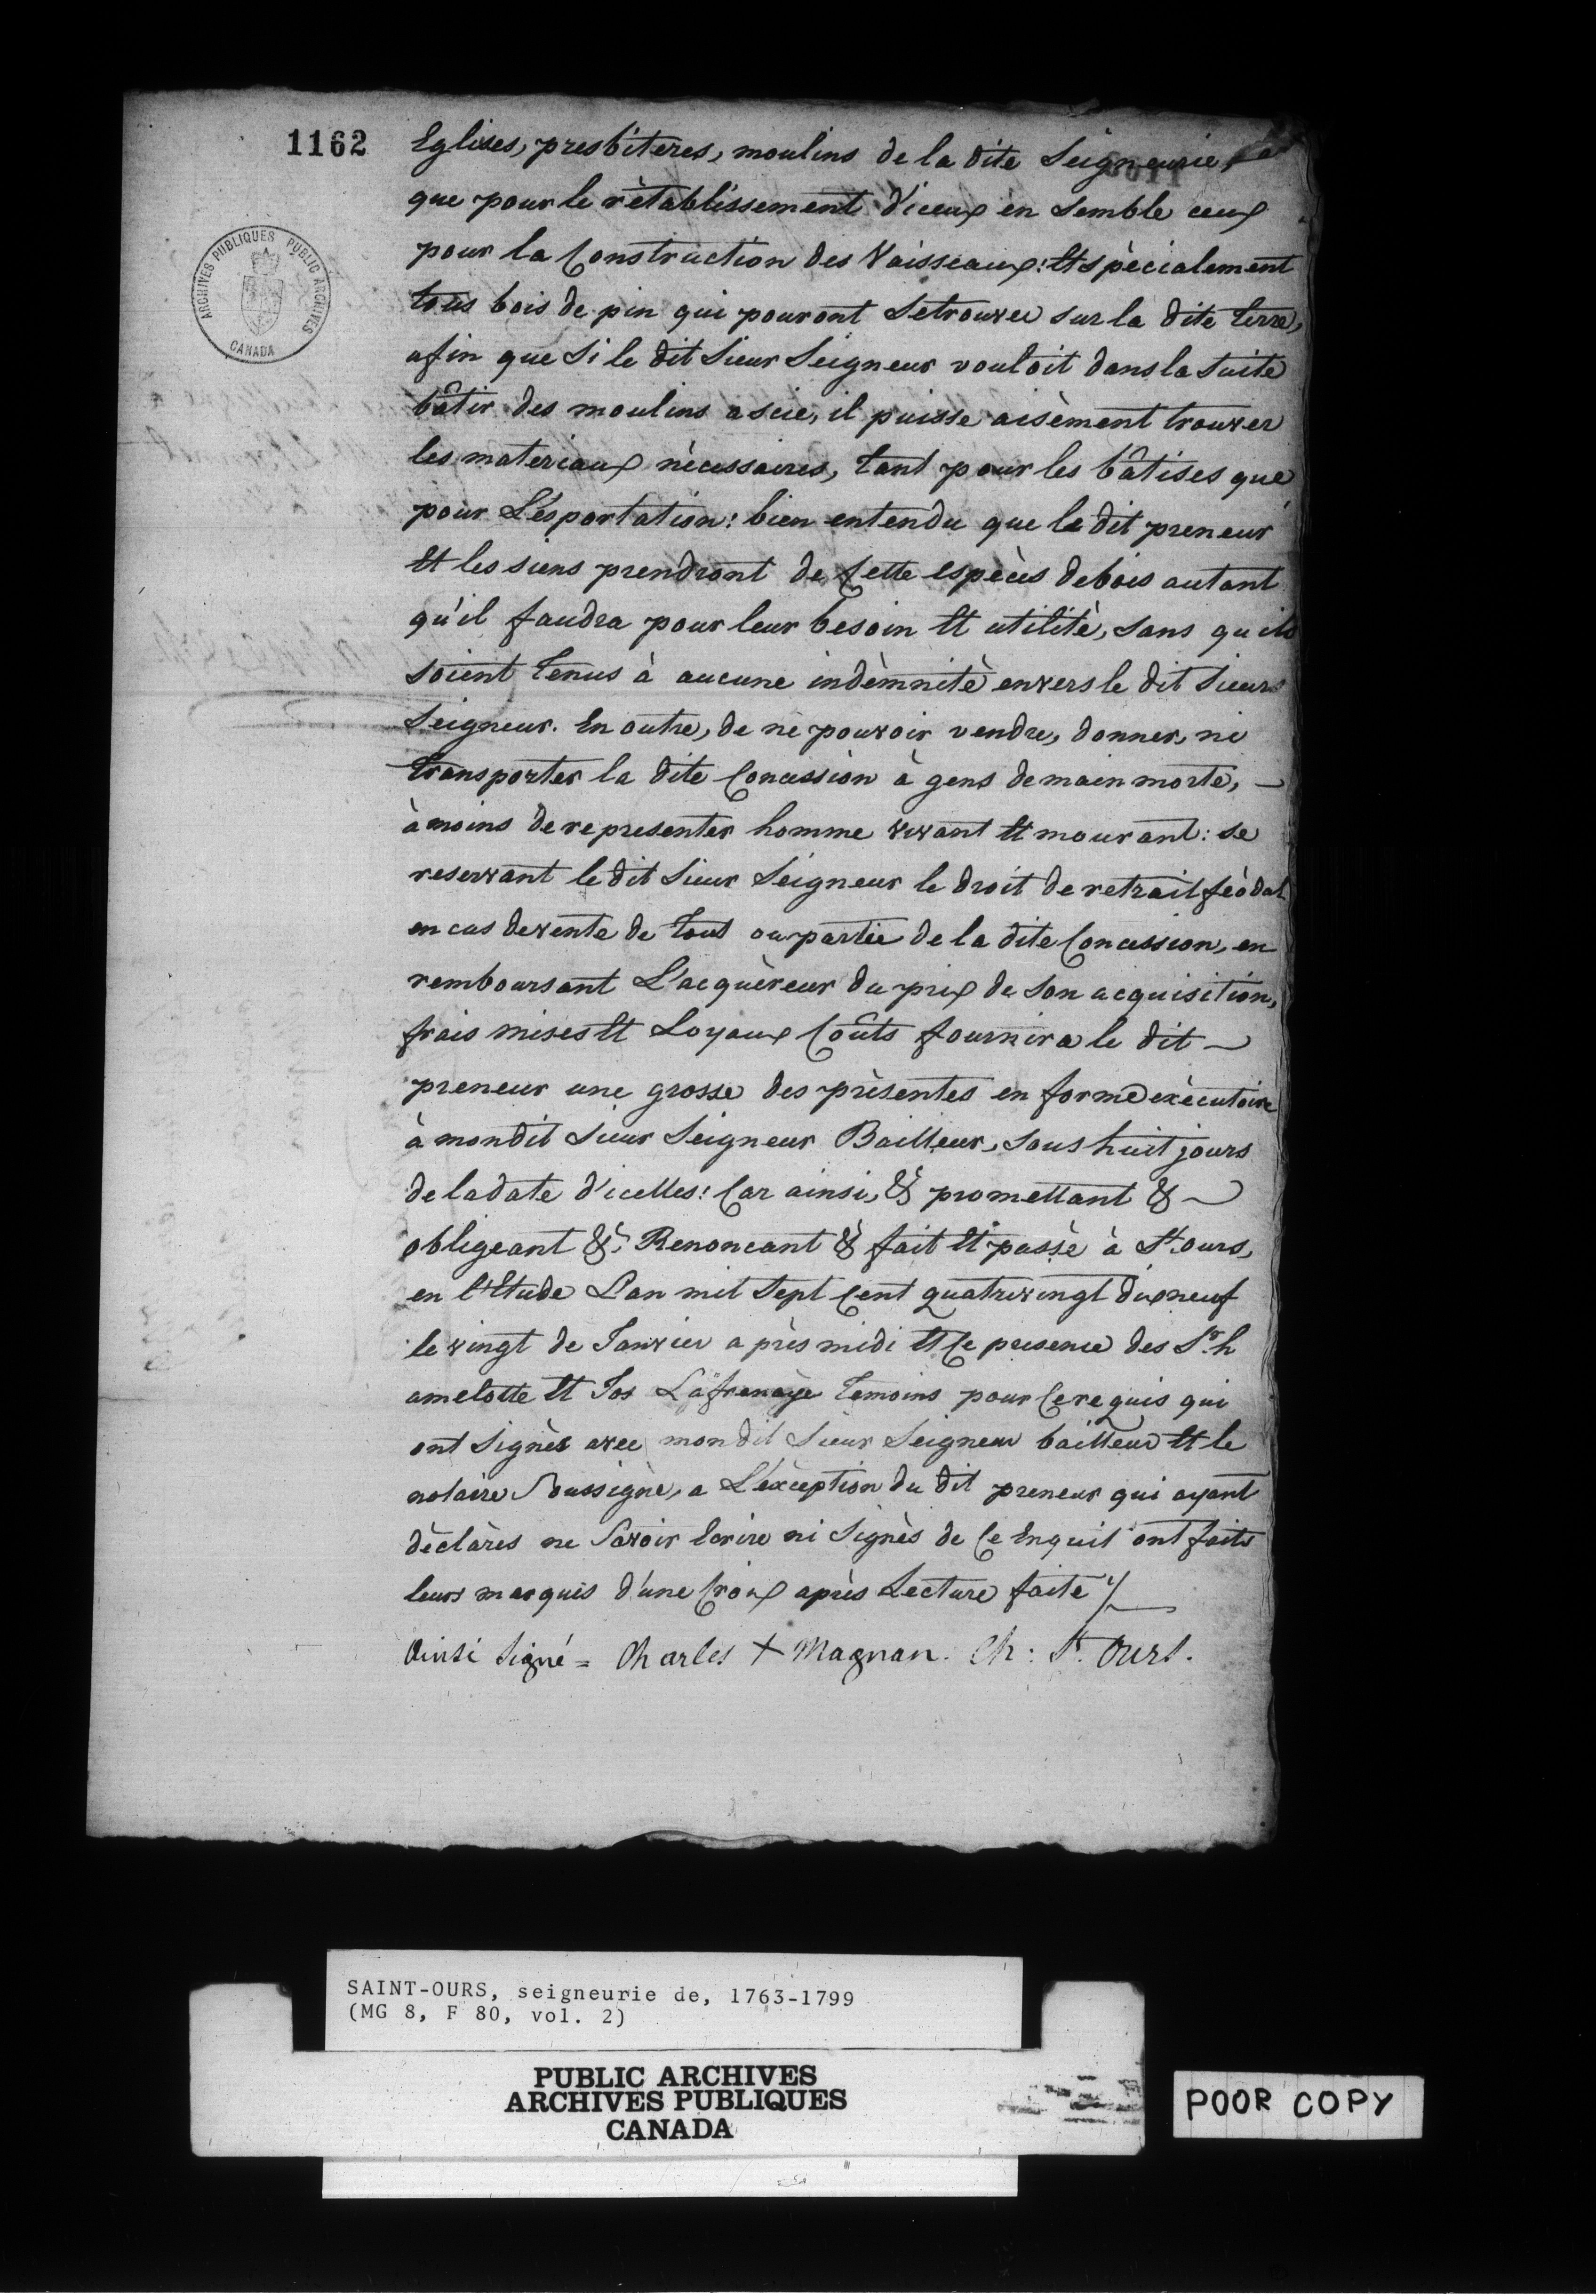 1162
Eglises, presbitères, moulins de la dite Seigneurie,
que pour le rètablissement d'iceux en semble ceux
pour la Construction des Vaisseaux: Et spècialement
tous bois de pin qui pouront Setrouver sur la dite terre,
afin que Si le dit Sieur Seigneur vouloit dans la Suite
bâtir des moulins a scie, il puisse aisèment trouver
les materiaux nècessaires, tant pour les bâtises que
pour L'esportation: bien entendu que le dit preneur
Et les siens prendront de Cette espèces debois autant
qu'il faudra pour leur besoin Et utilitè, sans qu'ils
soient tenus à aucune indèmnitè envers le dit Sieur
Seigneur. En outre, de ne pouvoir vendre, donner, ni
transporter la dite Concession à gens de main morte,
à moins de representer homme vivant Et mourant: se
reservant le dit Sieur Seigneur le droit de retrait fèodal
en cas de vente de tout ou partie de la dite Concession, en
remboursant L'acquèreur du prix de son acquisition,
frais mises Et Loyaux Coûts fournira le dit
preneur une grosse des prèsentes en forme exècutoire
à mondit Sieur Seigneur Bailleur, sous huit jours
de la date d'icelles: Car ainsi, & promettant &
obligeant &, Renoncant & fait Et passè à St. ours,
en l'Etude L'an mil Sept Cent quatrevingt dixneuf
le vingt de Janvier après midi Et Ce presence des Sr. h
amelotte Et Jos Lafrenaye temoins pour Ce requis qui
ont Signès avec mondit Sieur Seigneur bailleur Et le
notaire Soussignè, a L'èxception du dit preneur qui ayant
dèclarès ne Savoir Ecrire ni Signès de Ce Enquit ont faits
leurs marques d'une Croix après Lecture faite
Ainsi Signé = Charles + Magnan. Ch: St. Ours.
ARCHIVES PUBLIQUES PUBLIC ARCHIVES
CANADA
SAINT-OURS, seigneurie de, 1763-1799
(MG 8, F 80, vol. 2)
PUBLIC ARCHIVES
ARCHIVES PUBLIQUES
CANADA
POOR COPY